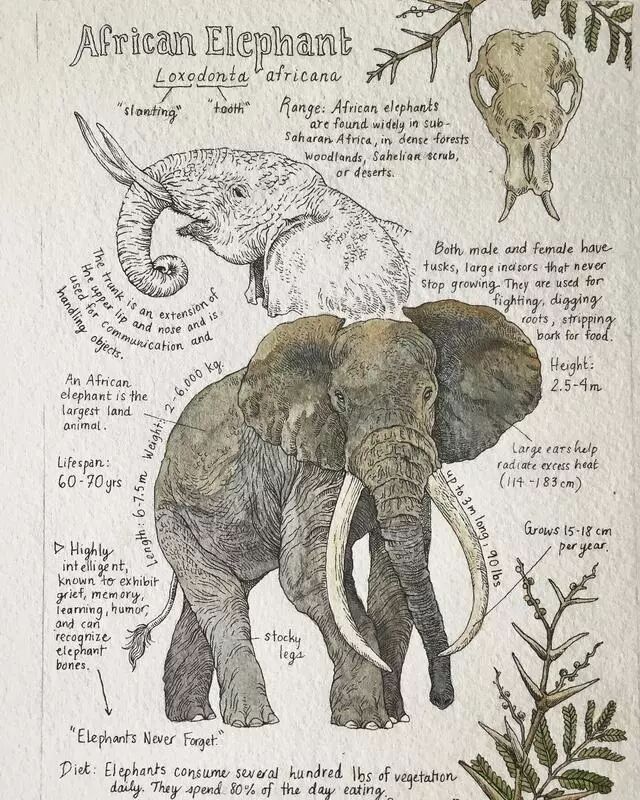 African Elephant
Loxodonta africana
"slanting" "tooth"
Range: African elephants
are found widely in sub-
Saharan Africa, in dense forests
woodlands, Sahelian scrub,
or deserts.
The trunk is an extension of
the upper lip and nose and is
used for communication and
handling objects.
Both male and female have
tusks, large incisors that never
stop growing. They are used for
fighting, digging
roots, stripping
bark for food.
Height:
2.5-4m
An African
elephant is the
largest land
animal.
Length: 6-7.5m Weight: 2-6,000 kg.
Large ears help
radiate excess heat
(114-183cm)
Lifespan:
60-70yrs
up to 3m long, 90lbs
Grows 15-18 cm
per year.
Highly
intelligent,
known to exhibit
grief, memory,
learning, humor,
and can
recognize
elephant
bones.
stocky
legs
"Elephants Never Forget."
Diet: Elephants consume several hundred lbs of vegetation
daily. They spend 80% of the day eating.